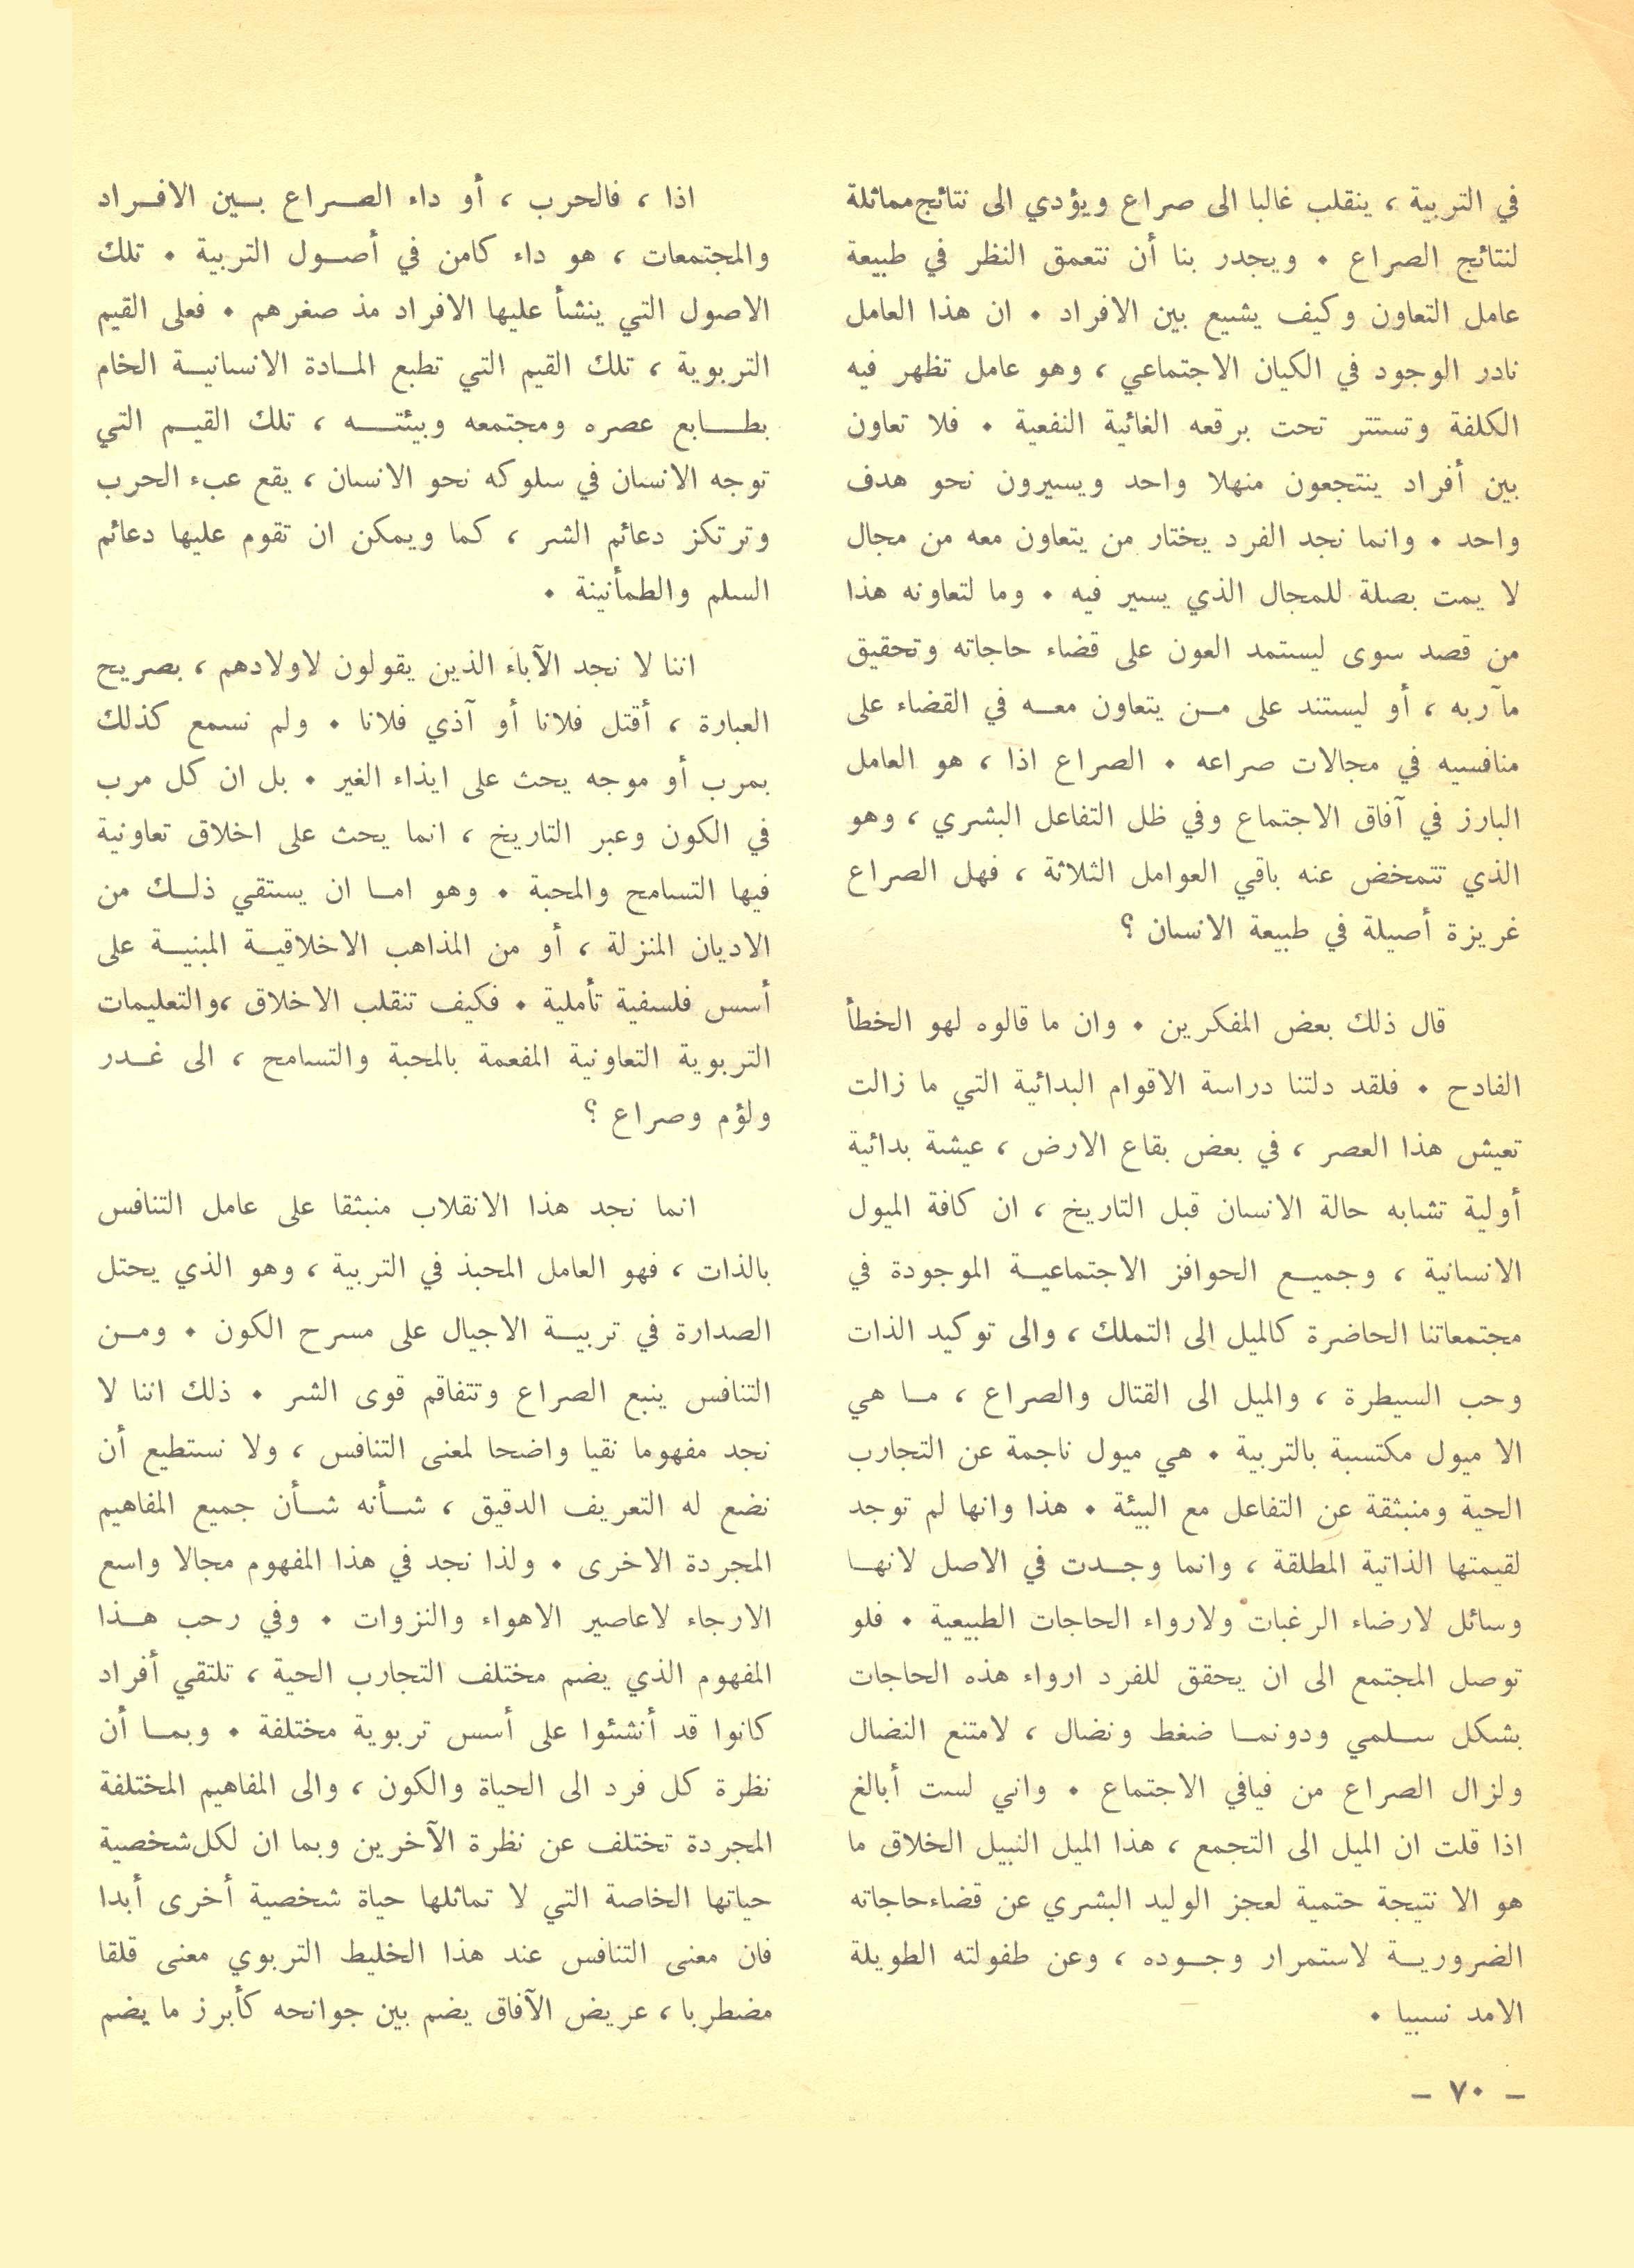 في التربية ، ينقلب غالبا الى صراع ويؤدي الى نتائج مماثلة
لنتائج الصراع • ويجدر بنا أن نتعمق النظر في طبيعة
عامل التعاون وكيف يشيع بين الافراد • ان هذا العامل
نادر الوجود في الكيان الاجتماعي ، وهو عامل تظهر فيه
الكلفة وتستتر تحت برقعه الغائية النفعية • فلا تعاون
بين أفراد ينتجعون منهلا واحد ويسيرون نحو هدف
واحد • وانما نجد الفرد يختار من يتعاون معه من مجال
لا يمت بصلة للمجال الذي يسير فيه • وما لتعاونه هذا
من قصد سوى ليستمد العون على قضاء حاجاته وتحقيق
مآربه ، أو ليستند على مـن يتعاون معـه في القضاء على
منافسيه في مجالات صراعه • الصراع اذا ، هو العامل
البارز في آفاق الاجتماع وفي ظل التفاعل البشري ، وهو
الذي تتمخض عنه باقي العوامل الثلاثة ، فهل الصراع
غريزة أصيلة في طبيعة الانسان ؟
قال ذلك بعض المفكرين • وان ما قالوه لهو الخطأ
الفادح • فلقد دلتنا دراسة الاقوام البدائية التي ما زالت
تعيش هذا العصر ، في بعض بقاع الارض ، عيشة بدائية
أولية تشابه حالة الانسان قبل التاريخ ، ان كافة الميول
الانسانية ، وجميـع الحوافز الاجتماعيـة الموجودة في
مجتمعاتنا الحاضرة كالميل الى التملك ، والى توكيد الذات
وحب السيطرة ، والميل الى القتال والصراع ، مـا هي
الا ميول مكتسبة بالتربية • هي ميول ناجمة عن التجارب
الحية ومنبثقة عن التفاعل مع البيئة • هذا وانها لم توجد
لقيمتها الذاتية المطلقة ، وانما وجـدت في الاصل لانهـا
وسائل لارضاء الرغبات ولارواء الحاجات الطبيعية • فلو
توصل المجتمع الى ان يحقق للفرد ارواء هذه الحاجات
بشكل سـلمي ودونمـا ضغط ونضال ، لامتنع النضال
ولزال الصراع من فيافي الاجتماع • واني لست أبالغ
اذا قلت ان الميل الى التجمع ، هذا الميل النبيل الخلاق ما
هو الا نتيجة حتمية لعجز الوليد البشري عن قضاء حاجاته
الضروريـة لاستمرار وجـوده ، وعن طفولته الطويلة
الامد نسبيا •
اذا ، فالحرب ، أو داء الصـراع بـين الافـراد
والمجتمعات ، هو داء كامن في أصـول التربية • تلك
الاصول التي ينشأ عليها الافراد مذ صغرهم • فعلى القيم
التربوية ، تلك القيم التي تطبع المـادة الانسانيـة الخام
بطـابع عصره ومجتمعه وبيئتـه ، تلك القيـم التي
توجه الانسان في سلوكه نحو الانسان ، يقع عبء الحرب
وترتكز دعائم الشر ، كما ويمكن ان تقوم عليها دعائم
السلم والطمأنينة •
اننا لا نجد الآباء الذين يقولون لاولادهم ، بصريح
العبارة ، أقتل فلانا أو آذي فلانا • ولم نسمع كذلك
بمرب أو موجه يحث على ايذاء الغير • بل ان كل مرب
في الكون وعبر التاريخ ، انما يحث على اخلاق تعاونية
فيها التسامح والمحبة • وهو امـا ان يستقي ذلـك من
الاديان المنزلة ، أو من المذاهب الاخلاقيـة المبنيـة على
أسس فلسفية تأملية • فكيف تنقلب الاخلاق ،والتعليمات
التربوية التعاونية المفعمة بالمحبة والتسامح ، الى غـدر
ولؤم وصراع ؟
انما نجد هذا الانقلاب منبثقا على عامل التنافس
بالذات ، فهو العامل المحبذ في التربية ، وهو الذي يحتل
الصدارة في تربيـة الاجيال على مسرح الكون • ومـن
التنافس ينبع الصراع وتتفاقم قوى الشر • ذلك اننا لا
نجد مفهوما نقيا واضحا لمعنى التنافس ، ولا نستطيع أن
نضع له التعريف الدقيق ، شـأنه شـأن جميع المفاهيم
المجردة الاخرى • ولذا نجد في هذا المفهوم مجالا واسع
الارجاء لاعاصير الاهواء والنزوات • وفي رحب هـذا
المفهوم الذي يضم مختلف التجارب الحية ، تلتقي أفراد
كانوا قد أنشئوا على أسس تربوية مختلفة • وبمـا أن
نظرة كل فرد الى الحياة والكون ، والى المفاهيم المختلفة
المجردة تختلف عن نظرة الآخرين وبما ان لكل شخصية
حياتها الخاصة التي لا تماثلها حياة شخصية أخرى أبدا
فان معنى التنافس عند هذا الخليط التربوي معنى قلقا
مضطربا ، عريض الآفاق يضم بين جوانحه كأبرز ما يضم
– ٧٠ –